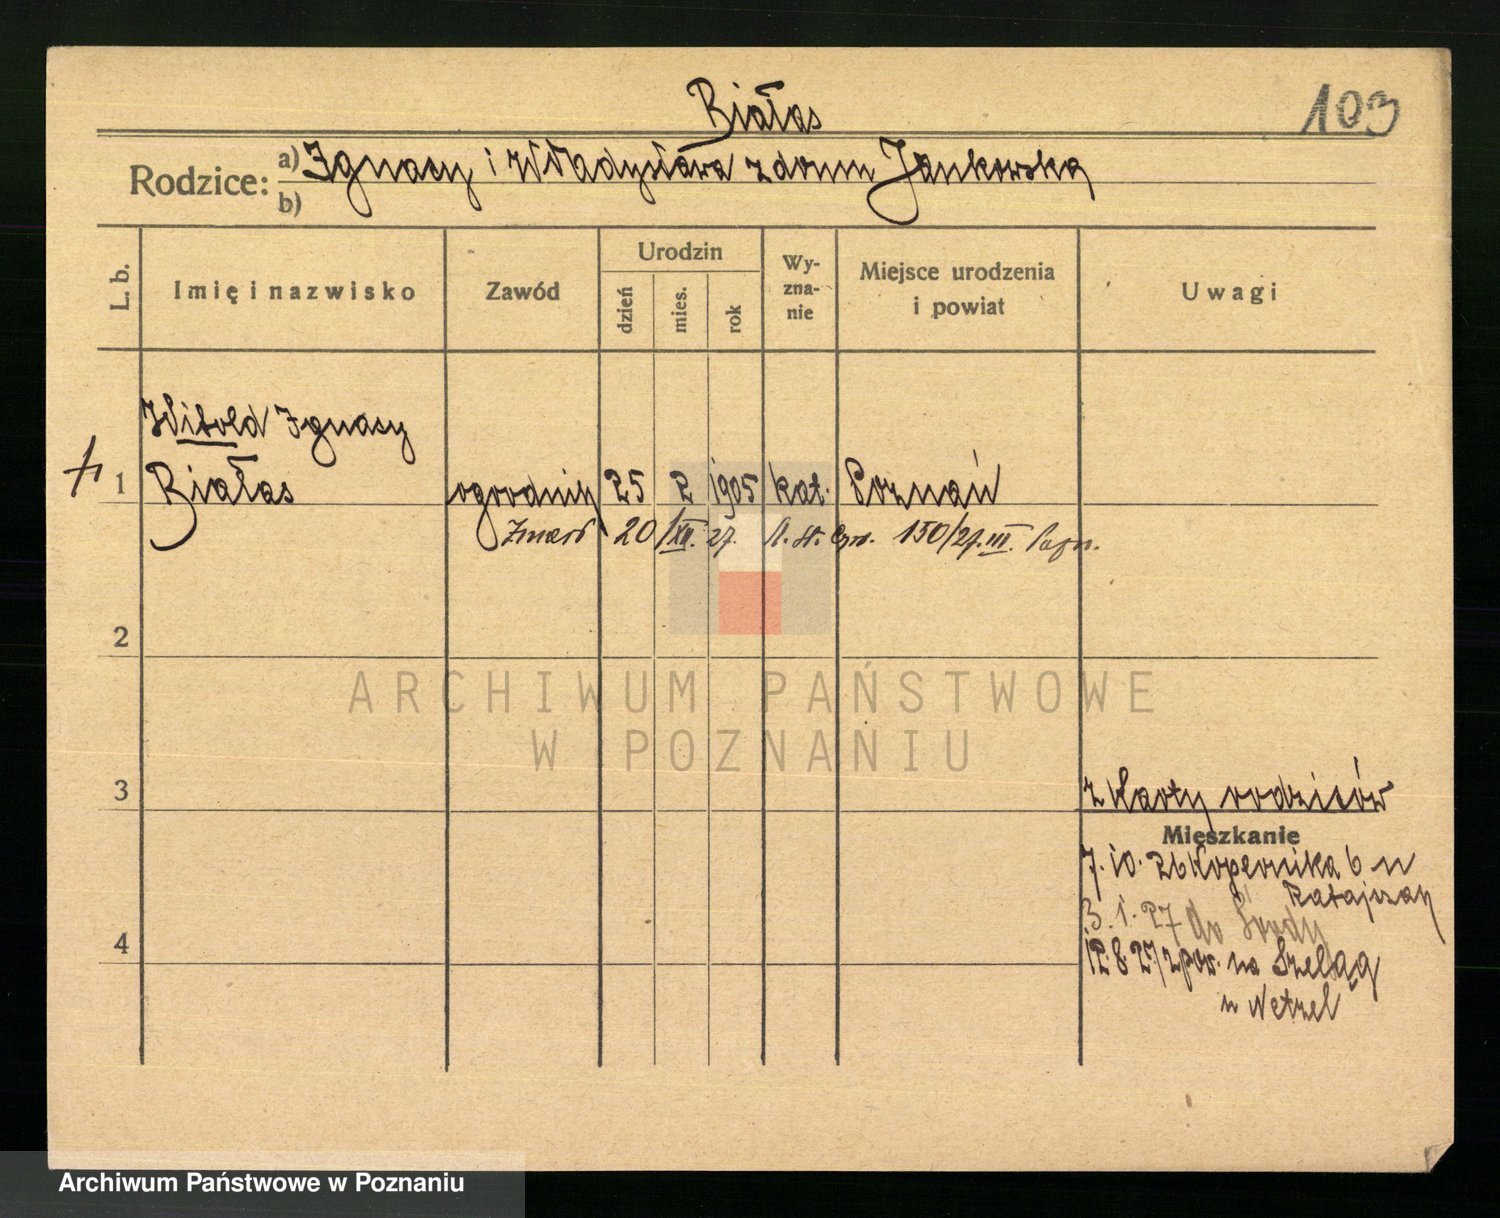 Białas
103
Rodzice: a) Ignacy i Władysława z domu Jankowska
b)
L. b.
Imię i nazwisko
Zawód
Urodzin
dzień
mies.
rok
Wy-
zna-
nie
Miejsce urodzenia
i powiat
Uwagi
Witold Ignacy
1 Białas ogrodnik 25 2 1905 kat. Poznań
Zmarł 20/XII. 27. A. St. Cyw. 150/27. III.
2
ARCHIWUM PAŃSTWOWE
W POZNANIU
3
z Karty rodziców
Mieszkanie
7. 10. 26 Kopernika 6 u
Ratajczak
3. 1. 27 do Środy
4
12. 8. 27 z pow. na Szeląg
u Wetzel
Archiwum Państwowe w Poznaniu